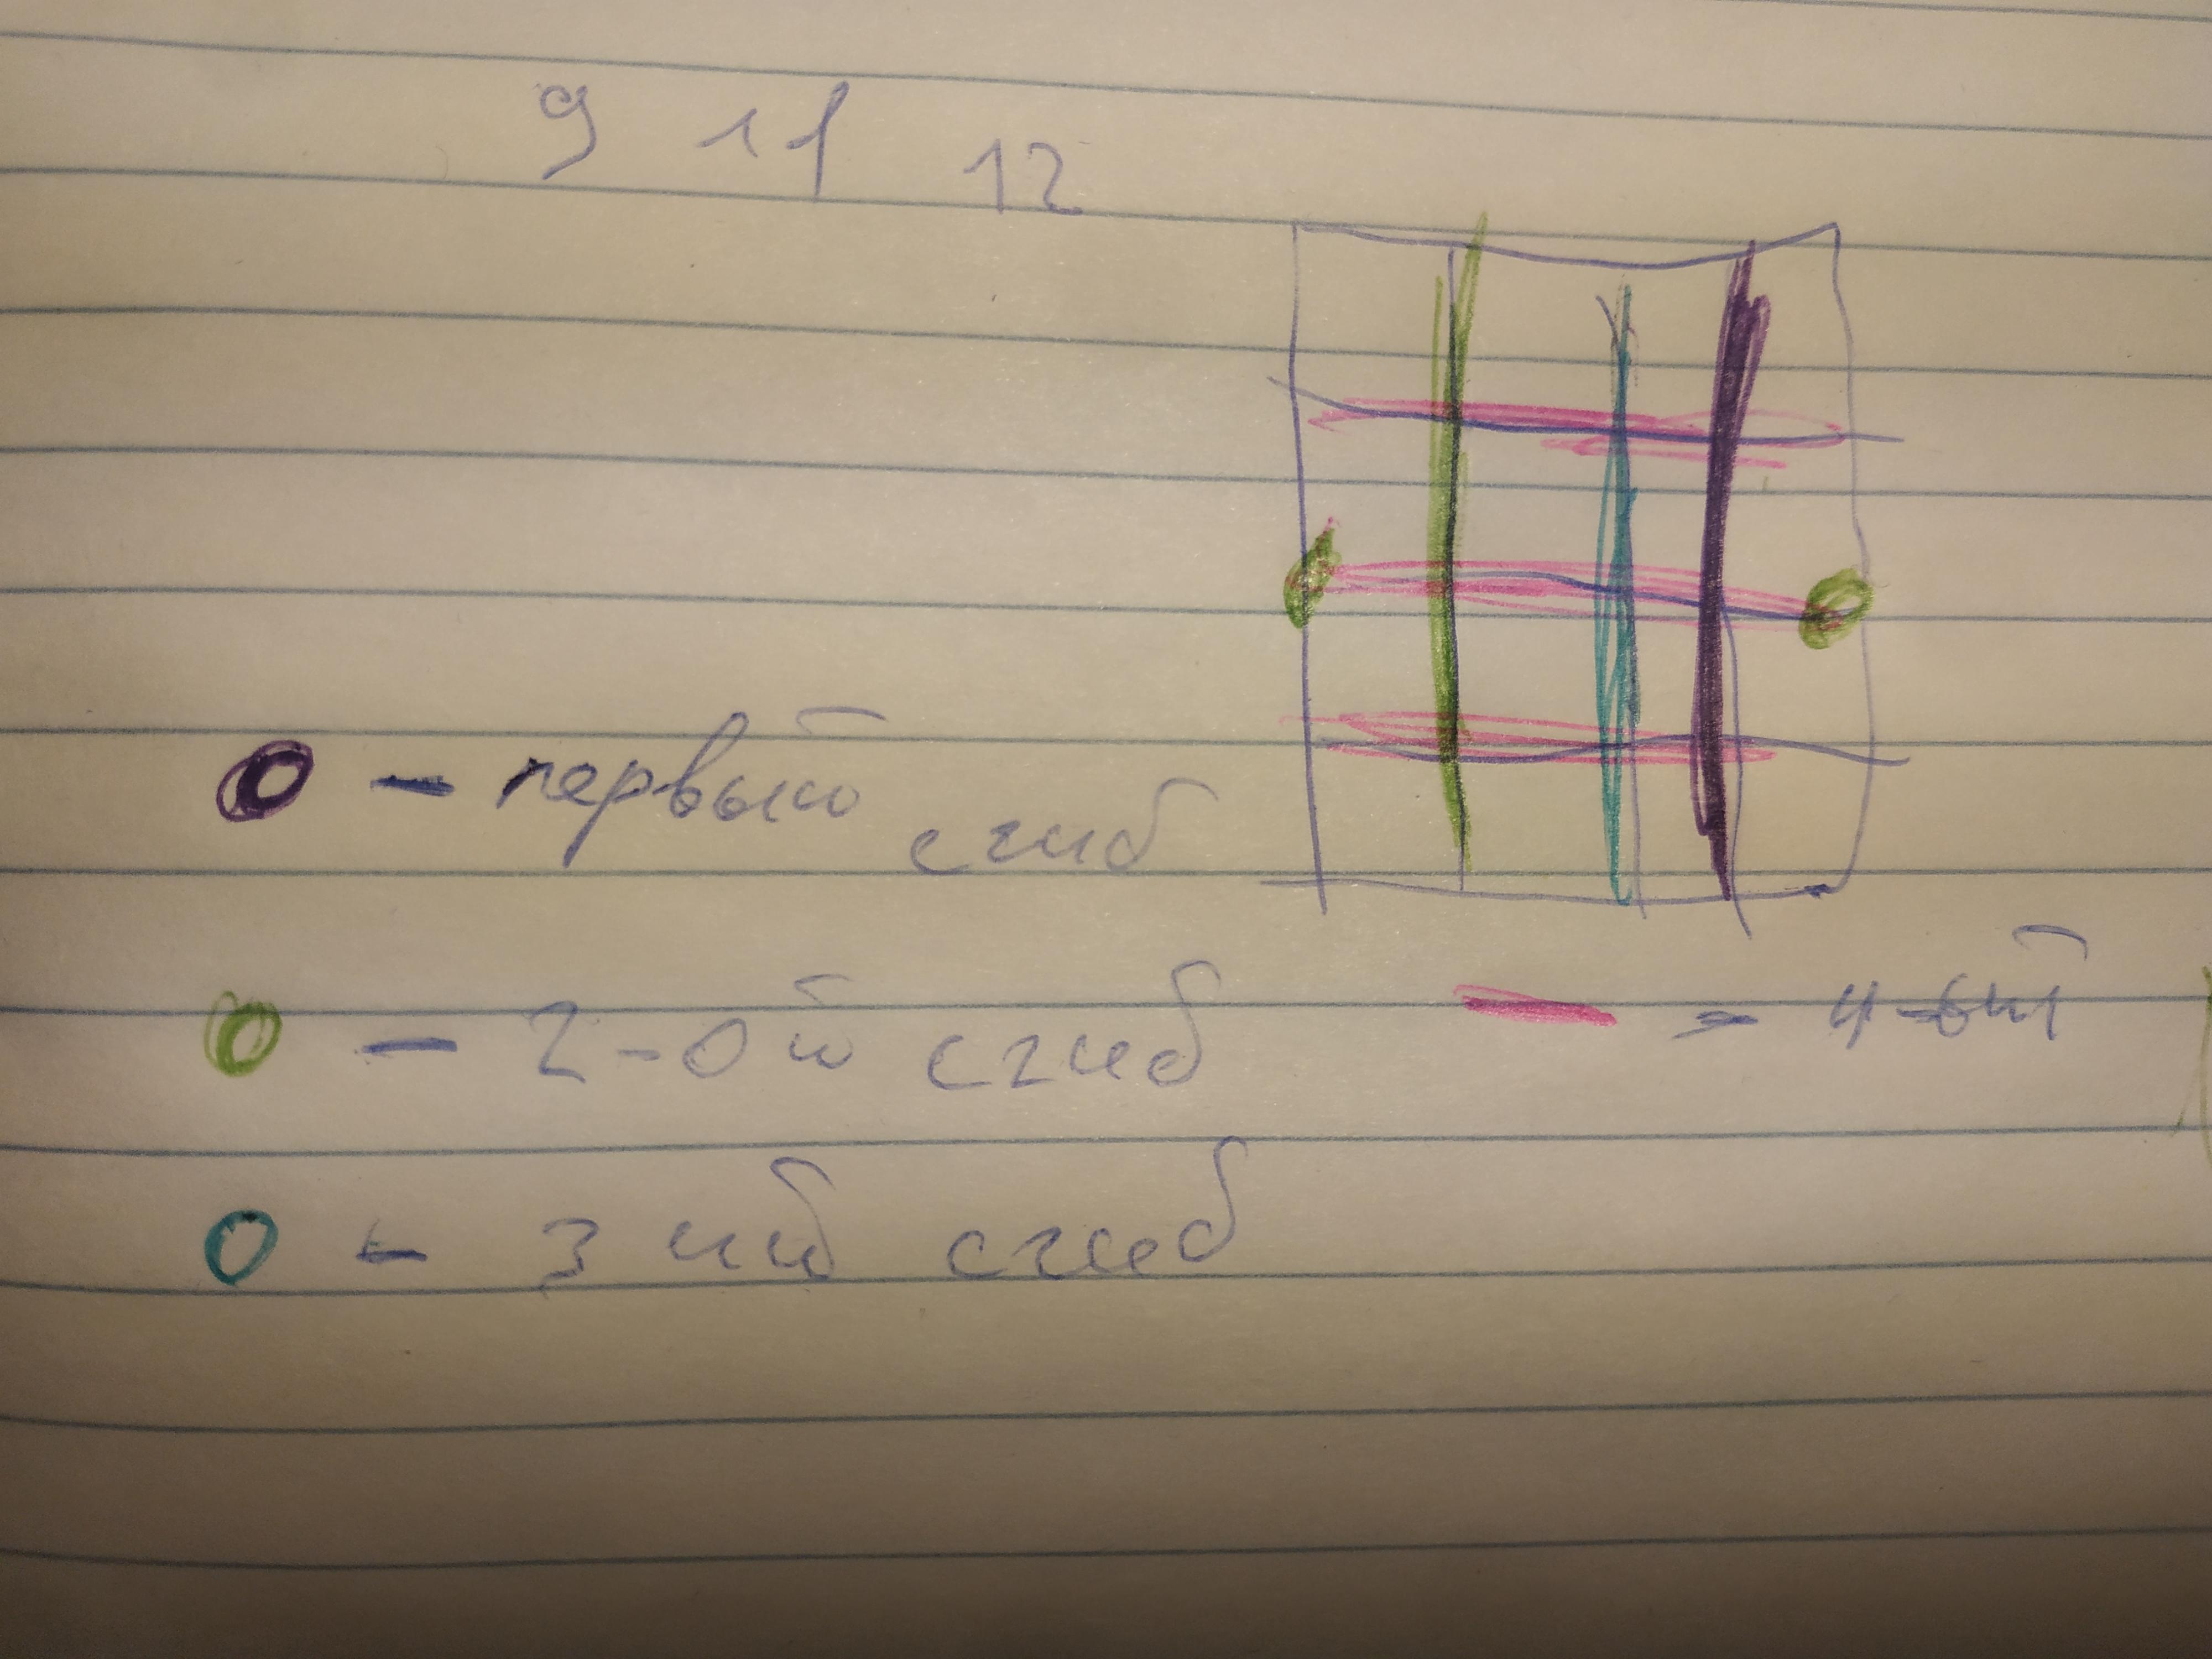 9 11 12
- первый сгиб
- 2-ой сгиб
- 4-ый
- 3 ий сгиб